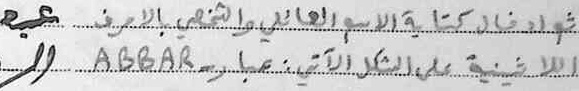 شواد خال كتابة الاسم العائلي والشخصي بالاحرف
اللاتينية على الشكل الآتي: عبار ABBAR